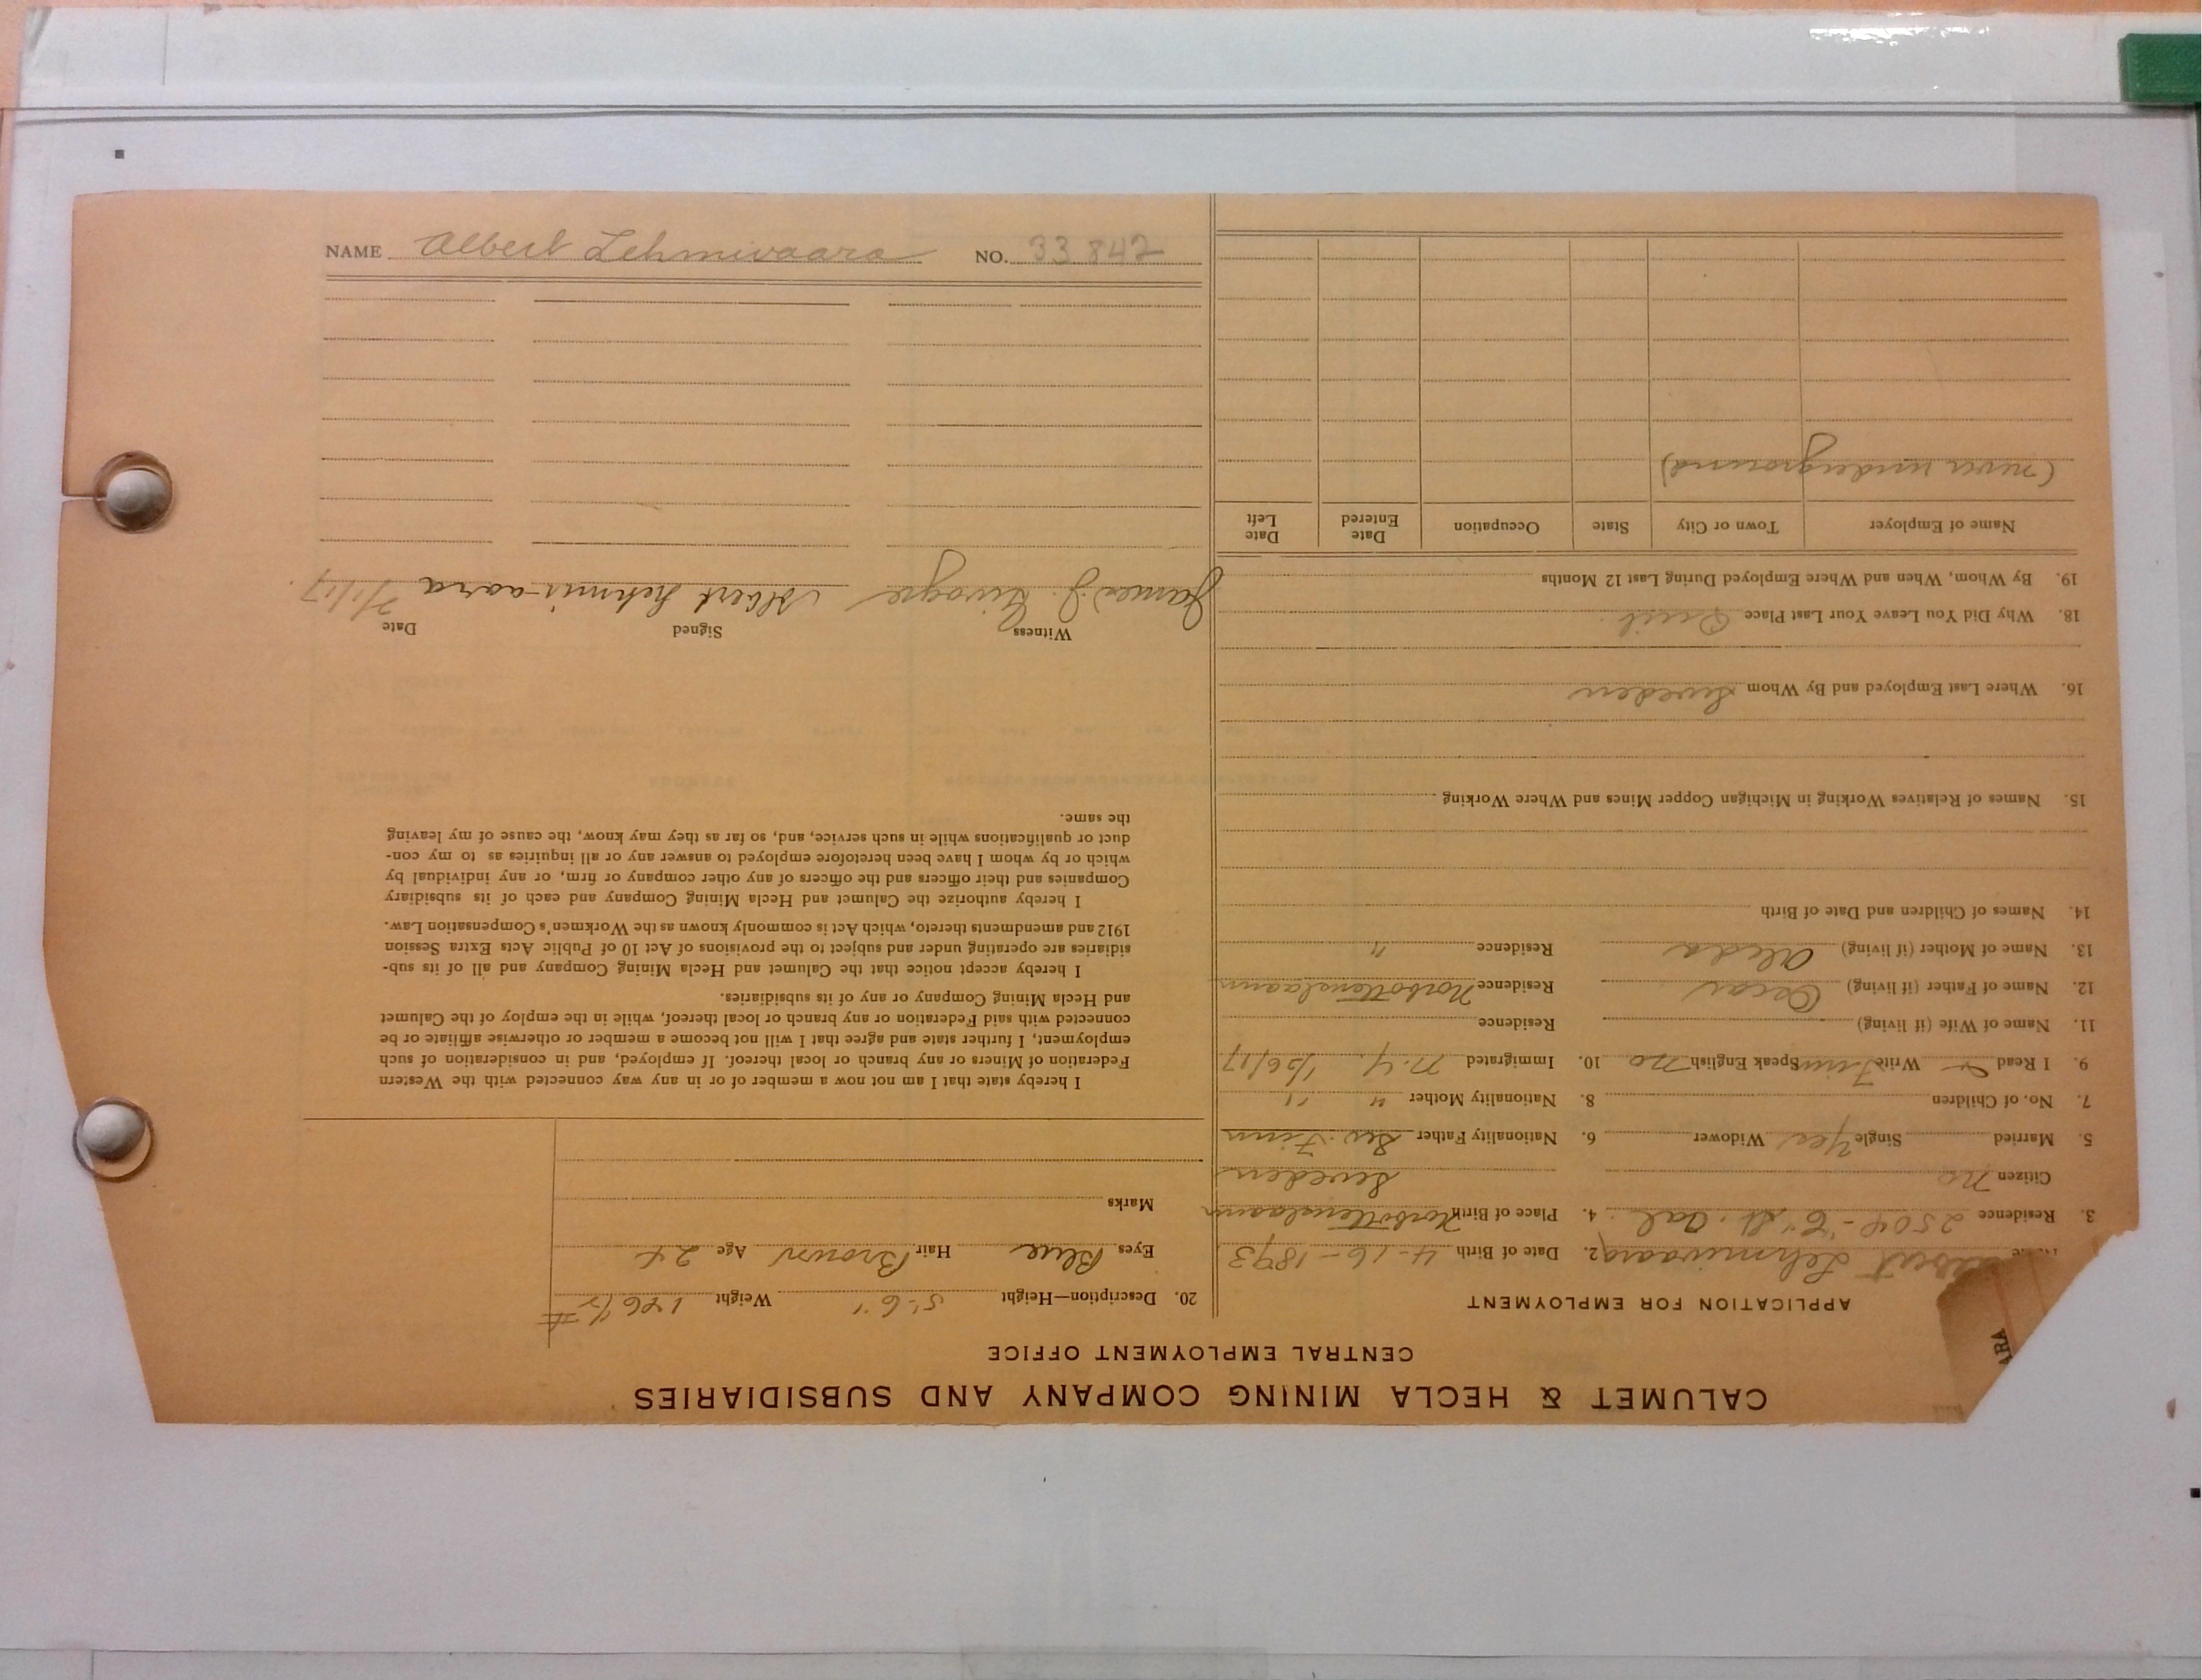 CALUMET & HECLA MINING COMPANY AND SUBSIDIARIES
CENTRAL EMPLOYMENT OFFICE
APPLICATION FOR EMPLOYMENT
Lehmivaara 2. Date of Birth 4-16-1893
3. Residence 2504-E St. Cal. 4. Place of Birth Norbottenslaann
Citizen No Sweden
5. Married Single Yes Widower 6. Nationality Father Sw. Finn
7. No. of Children 8. Nationality Mother " "
9. I Read Write Finn Speak English No 10. Immigrated N.Y. 1/26/17
11. Name of Wife (if living) Residence
12. Name of Father (if living) Oscar Residence Norbottenslaann
13. Name of Mother (if living) Aleda Residence "
14. Names of Children and Date of Birth
15. Names of Relatives Working in Michigan Copper Mines and Where Working
16. Where Last Employed and By Whom Sweden
18. Why Did You Leave Your Last Place Quit
19. By Whom, When and Where Employed During Last 12 Months
Name of Employer Town or City State Occupation Date Entered Date Left
(never underground)
20. Description—Height 5'-6" Weight 146½ #
Eyes Blue Hair Brown Age 24
Marks
I hereby state that I am not now a member of or in any way connected with the Western
Federation of Miners or any branch or local thereof. If employed, and in consideration of such
employment, I further state and agree that I will not become a member or otherwise affiliate or be
connected with said Federation or any branch or local thereof, while in the employ of the Calumet
and Hecla Mining Company or any of its subsidiaries.
I hereby accept notice that the Calumet and Hecla Mining Company and all of its sub-
sidiaries are operating under and subject to the provisions of Act 10 of Public Acts Extra Session
1912 and amendments thereto, which Act is commonly known as the Workmen's Compensation Law.
I hereby authorize the Calumet and Hecla Mining Company and each of its subsidiary
Companies and their officers and the officers of any other company or firm, or any individual by
which or by whom I have been heretofore employed to answer any or all inquiries as to my con-
duct or qualifications while in such service, and, so far as they may know, the cause of my leaving
the same.
Witness Signed Date
James J. Albert Lehmivaara 7/1/17
NAME Albert Lehmivaara NO. 33842
ARA